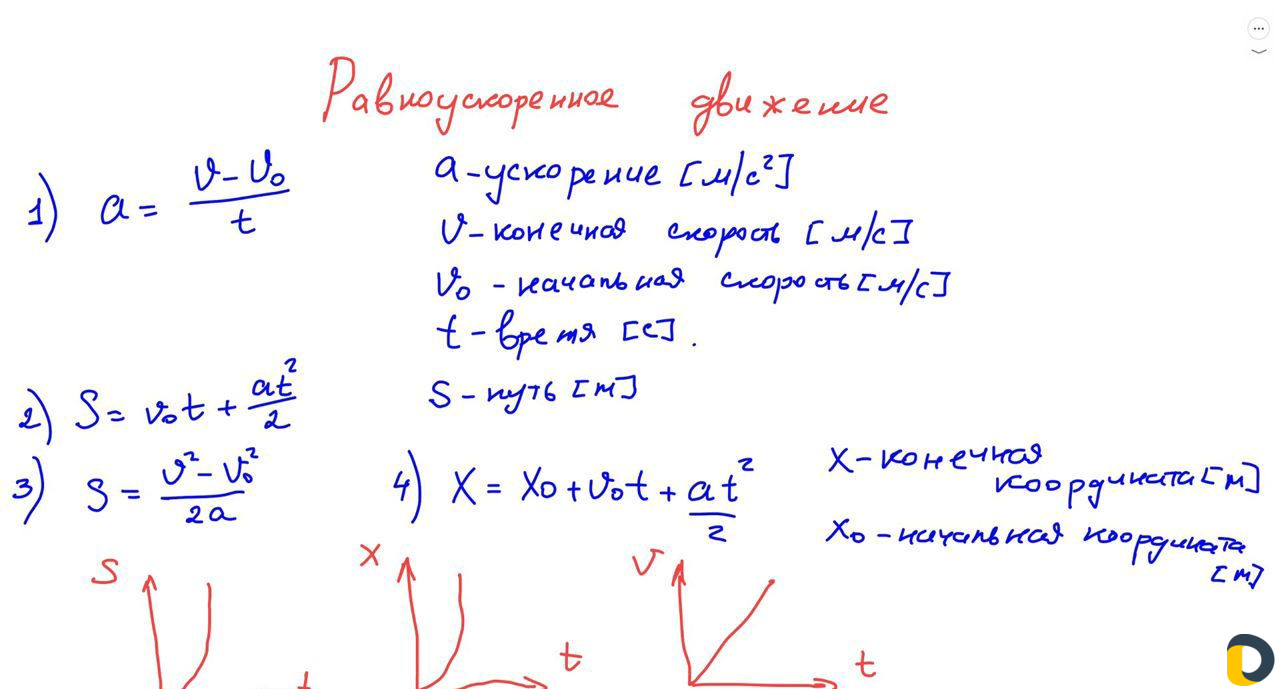 Равноускоренное движение
1) a = (v - v₀)/t
a - ускорение [м/с²]
v - конечная скорость [м/с]
v₀ - начальная скорость [м/с]
t - время [с].
S - путь [м]
2) S = v₀t + at²/2
3) S = (v² - v₀²)/2a
4) X = X₀ + v₀t + at²/2
X - конечная
координата [м]
X₀ - начальная координата
[м]
S t
X t
V t